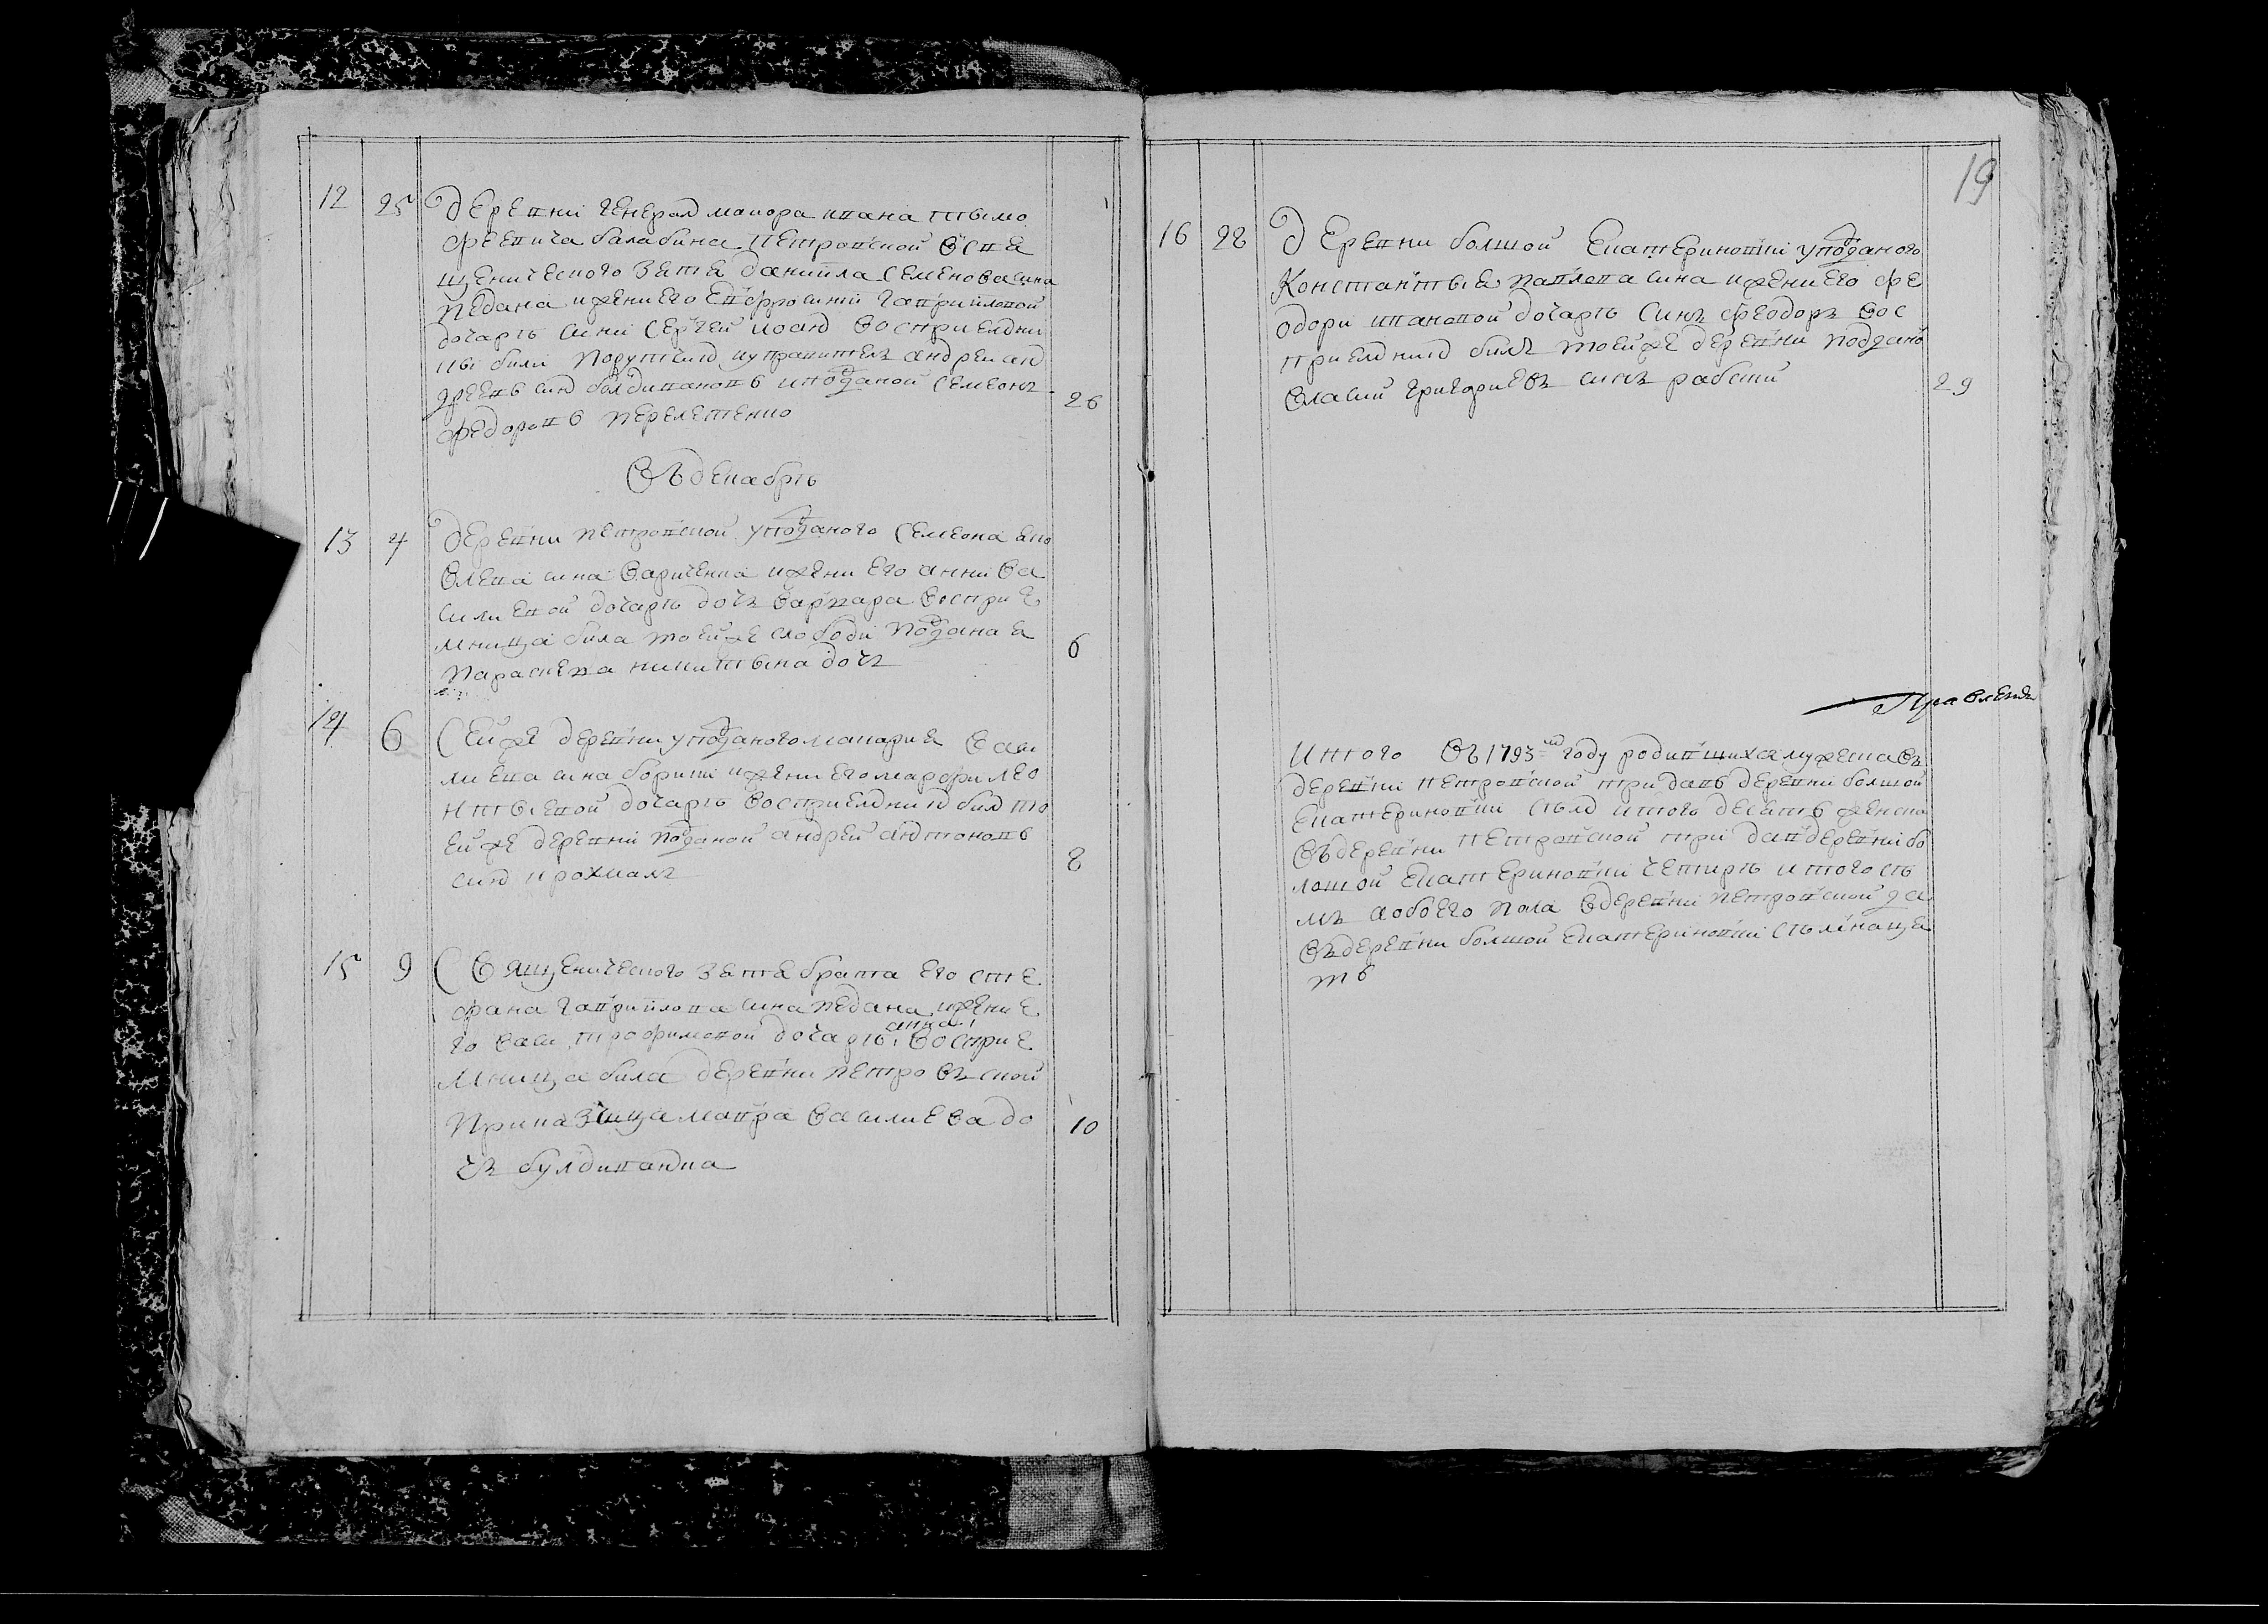 12 25 деревни генерал маиора ивана тымо
феевича балабина петровской свяще
щенического зятя даниила семенова сина
педана и жени его евфросинии гаврииловой
дочарь сини сергей иоан восприемни
ки били порутчик и управитель андреи ан
дреевь син болдинановь и поданой семеонъ
федоровь перелетенко 26
Въ декабрь
13 4 деревни петровской у поданого семеона яко
влева сина вариченка и жени его анни ва
силиевой дочарь дочъ варвара восприе
мница била тоейже слободи поданая
параскева никитына дочъ 6
14 6 Сейже деревни у поданого макария васи
лиева сина и жени его марфи лео
нтыевой дочарь восприемник бил то
ейже деревни поданой андрей антоновь
син крохмалъ 8
15 9 Священического зятя брата его сте
фана гаврийлова сина педана и жени е
го васи трофимовой дочарь анна восприе
мница била деревни петровъской
приказщица мавра василиева до
чъ булдинанка 10
19
16 28 Деревни болшой Екатериновки у поданого
Константыя павлова сина и жени его фе
одори ивановой дочарь Синъ феодоръ вос
приемник билъ тоейже деревни поддано
власий григориевъ синъ рабский 29
Правления
Итого въ 1793 м году родившихся мужеска въ
деревни петровской тридать деревни болшой
Екатериновки итого десять женска
въ деревни петровской три да в деревни бо
лшой Екатериновки четирь итого сь
мъ а обоего пола в деревни петровской да
въ деревни болшой Екатериновки
ть